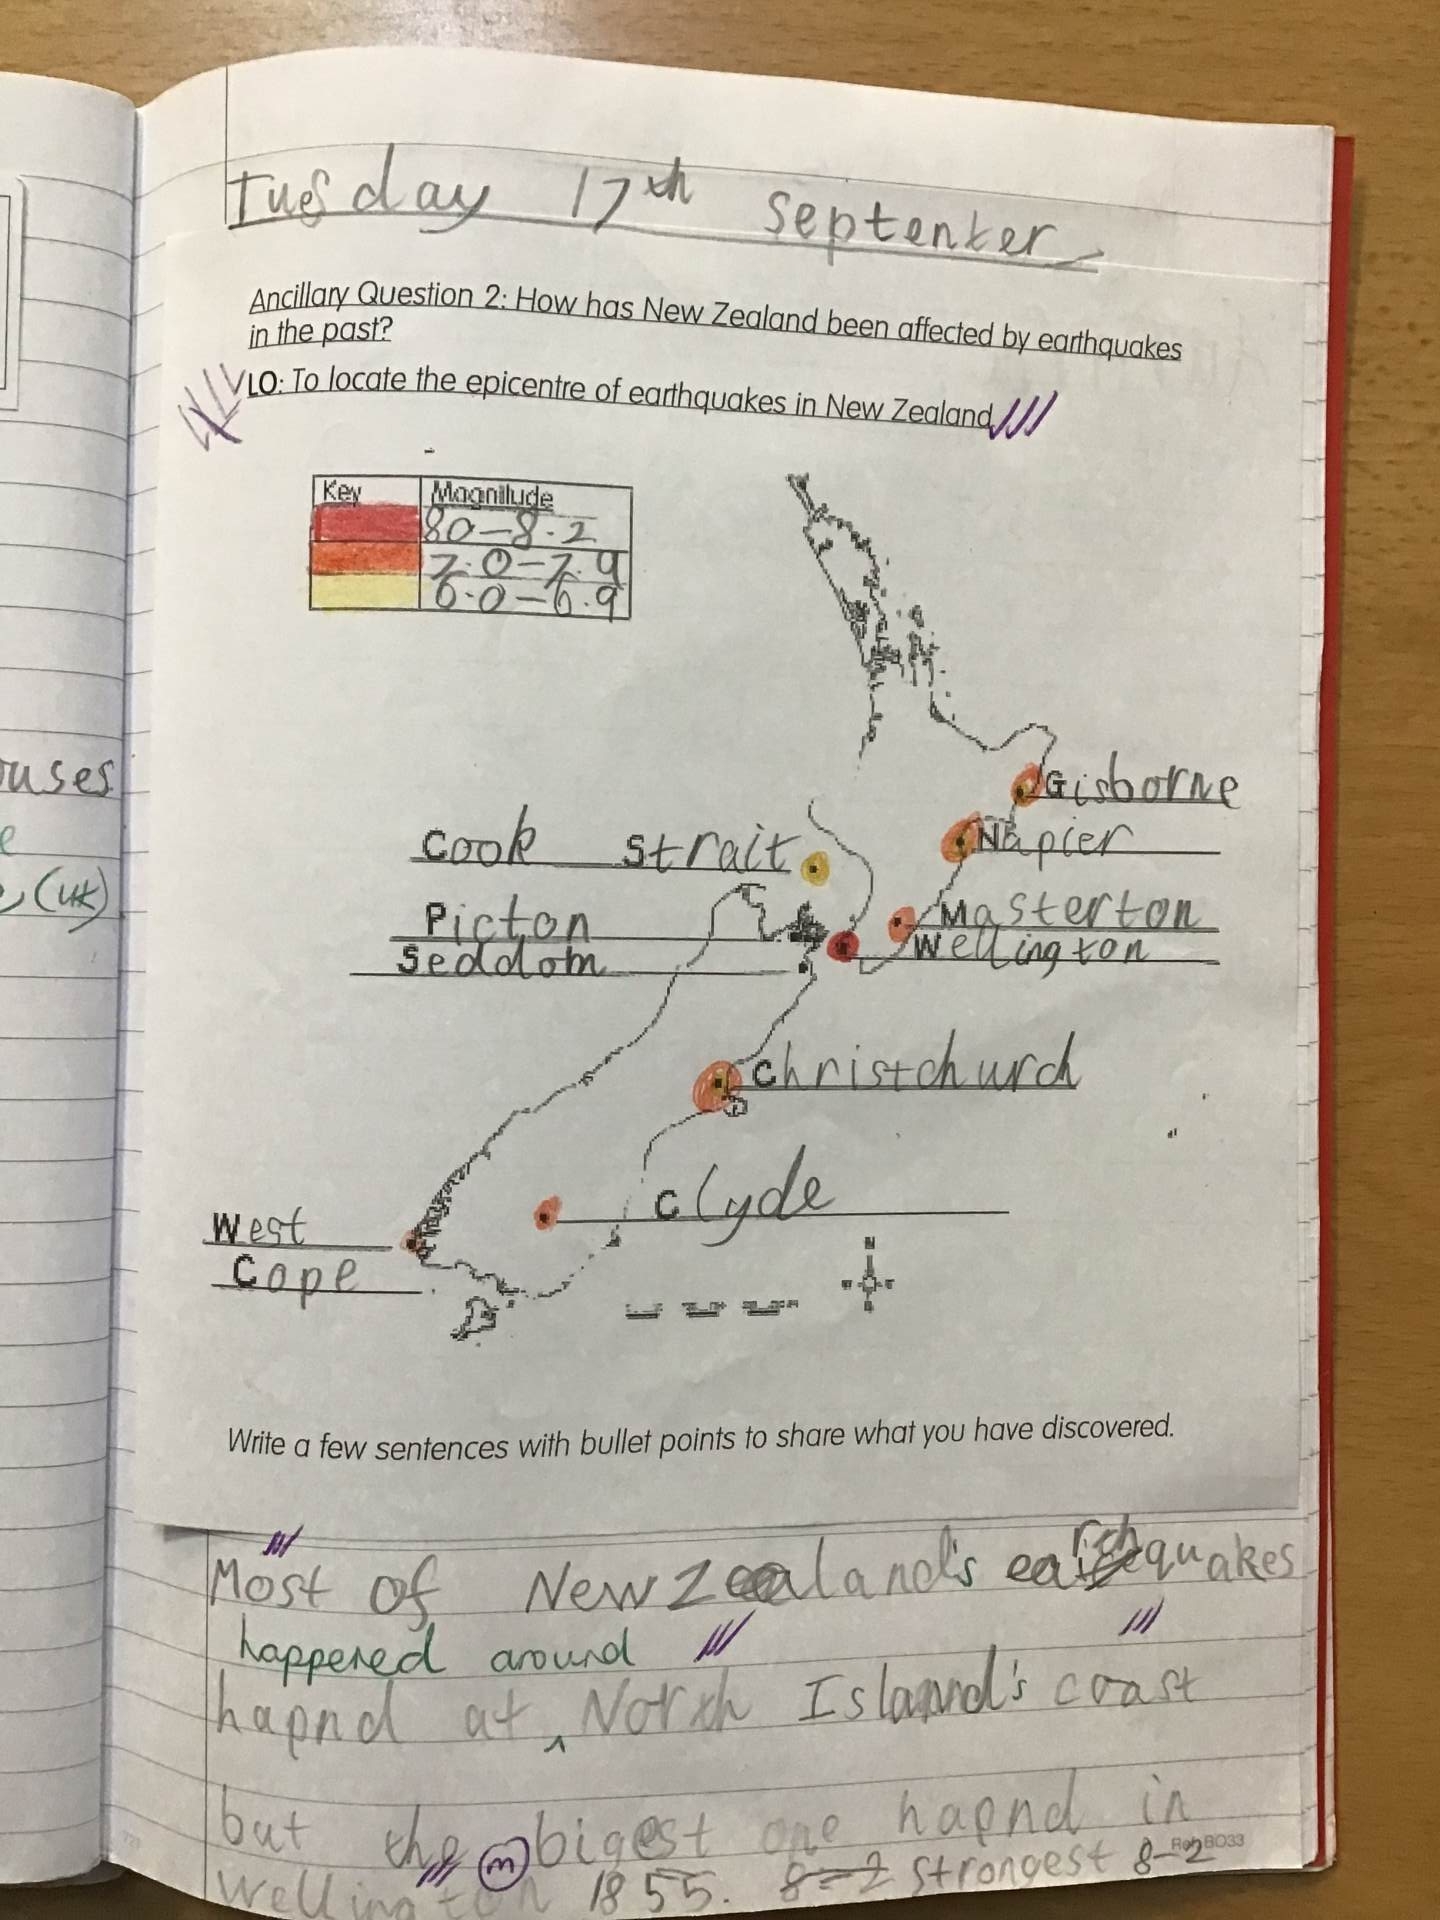 Tuesday 17th September
Ancillary Question 2: How has New Zealand been affected by earthquakes
in the past?
LO: To locate the epicentre of earthquakes in New Zealand
Key Magnitude
80-8.2
7.0-7.9
6.0-6.9
Gisborne
Cook Strait
Napier
Picton
Masterton
Seddom
Wellington
Christchurch
Clyde
West
Cope
N
Write a few sentences with bullet points to share what you have discovered.
Most of New Zealand's earthquakes
happened around
hapnd at ^ North Island's coast
but the bigest one hapnd in
m
Wellington 1855. 8-2 strongest 8-2
ouses
e
(uk)